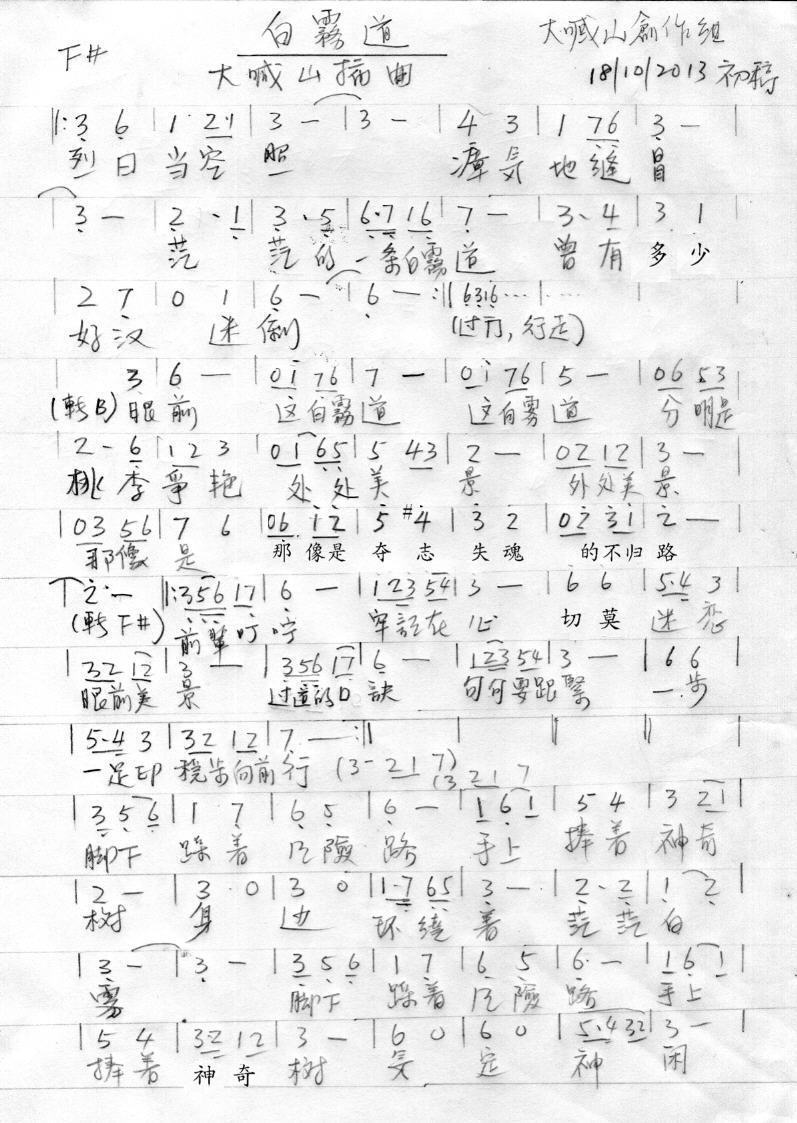 白霧道
大喊山創作組
F#
大喊山插曲
18/10/2013 初稿
|: 3 6 | 1 2 1 | 3 — | 3 — | 4 3 | 1 7 6 | 3 — |
烈日 当空 照 瘴気 地縫 冒
| 3 — | 2 · 1 | 3 · 5 | 6·7 1 6 | 7 — | 3 · 4 | 3 1
茫 茫的 一条白霧 道 曾有 多少
| 2 7 | 0 1 | 6 — | 6 — :|| 6316 ···· | ····
好汉 迷倒 (过门, 行走)
3 | 6 — | 01 76 | 7 — | 01 76 | 5 — | 06 53
(轉B) 眼前 这白霧道 这白雾道 分明是
| 2 · 6 | 12 3 | 01 65 | 5 43 | 2 — | 02 12 | 3 — |
桃李爭艳 处处美 景 处处美景
| 03 56 | 7 6 | 06 12 | 5 #4 | 3 2 | 02 31 | 2 — |
那像是 那像是夺志失魂 的不归路
2 · — |: 356 17 | 6 — | 123 54 | 3 — | 6 6 | 5·4 3
(轉F#) 前輩叮咛 牢記在心 切莫 迷恋
| 32 12 | 3 — | 356 17 | 6 — | 123 54 | 3 — | 6 6 |
眼前美景 过道的口訣 句句要跟緊 一步
| 5·4 3 | 32 12 | 7 · — :|| | || ||
一足印 稳步向前行 (3 - 2 1 7) (3 2 1 7
| 3 5 6 | 1 7 | 6 5 | 6 — | 1 6 1 | 5 4 | 3 21 |
脚下 踩着 凶險 路 手上 捧着 神奇
| 2 — | 3 · 0 | 3 0 | 1·7 65 | 3 — · | 2 · 2 | 1 2
树 身 边 环绕 着 茫茫白
| 3 — | 3 — | 3 5 6 | 1 7 | 6 5 | 6 · — | 1 6 1
雾 脚下 踩着 凶險 路 手上
| 5 4 | 32 12 | 3 — | 6 0 | 6 0 | 5·4 32 | 3 —
捧着 神奇 树 気 定 神 闲